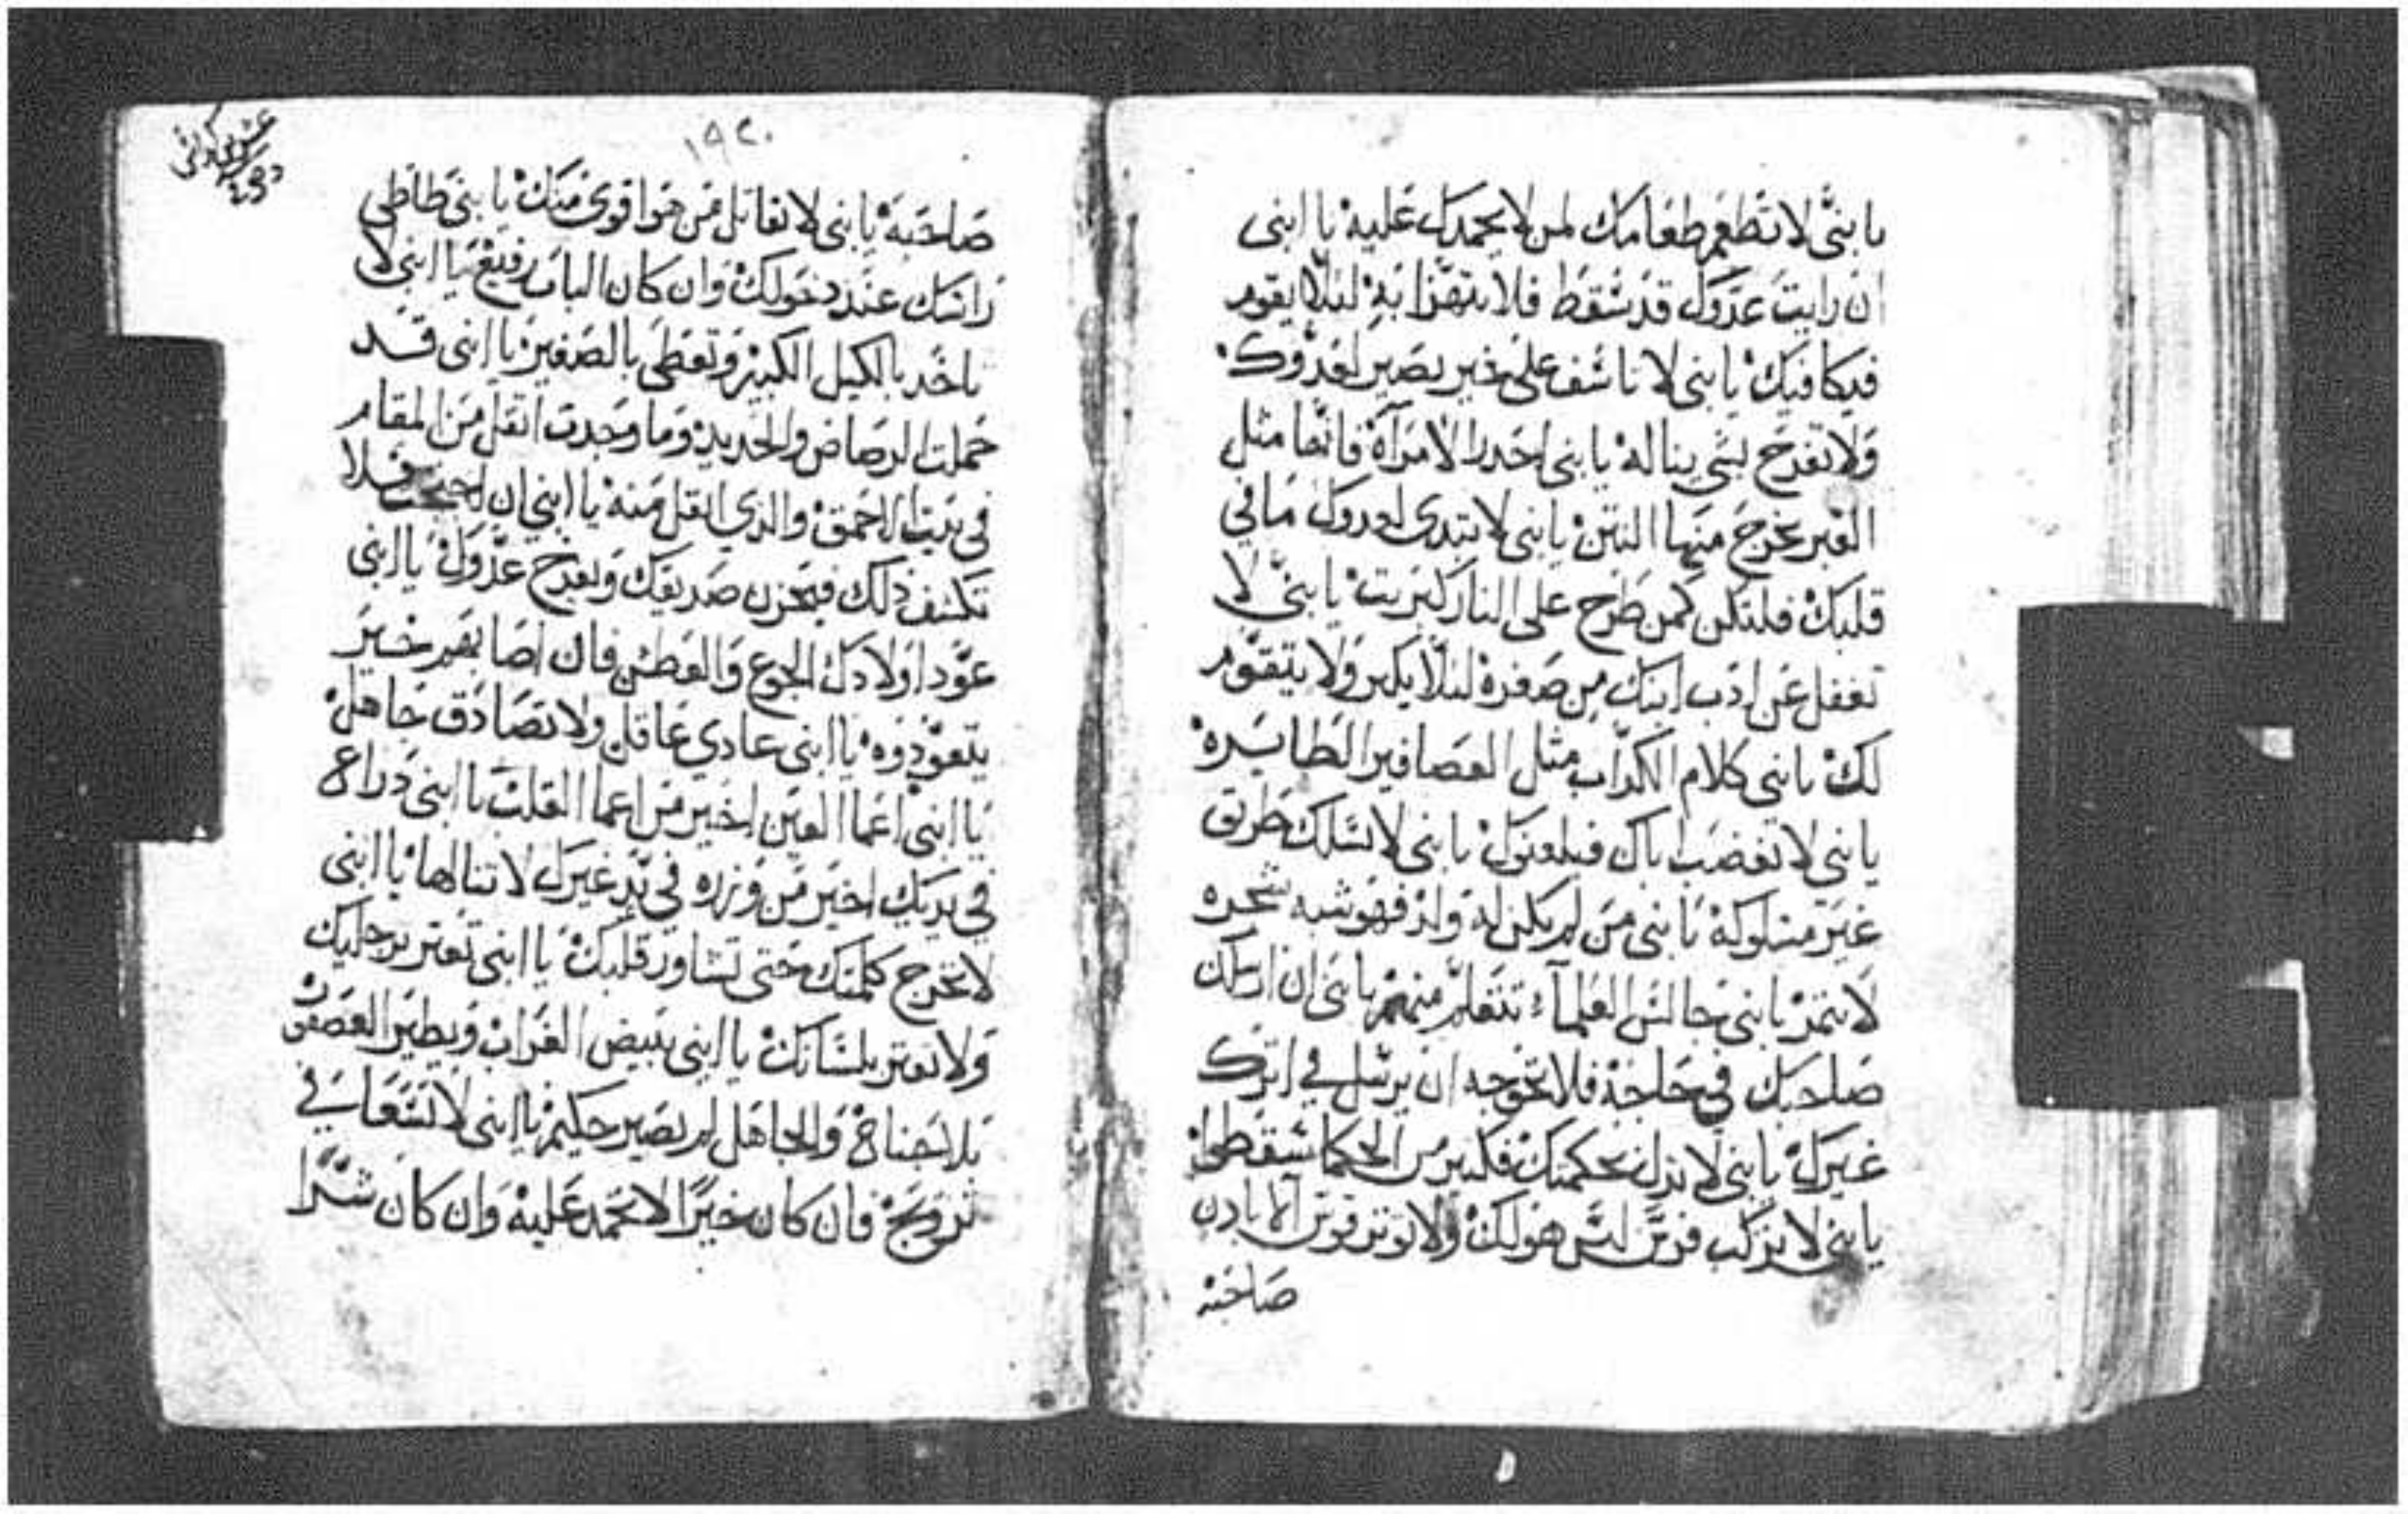 يا بنىّ لا تطعم طعامك لمن لا يحمدك عليه يا ابنى
ان رايت عدوك قد سقط فلا تتهزا به لئلا يقوم
فيكافيك يا بنى لا تاسف على خير يصير لعدوك
ولا تفرح بشى يناله يا بنى احدر الامرآة فانها مثل
القبر يخرج منها النتن يا بنى لا تبدى لعدوك ما في
قلبك فلتكن كمن طرح على النار كبريت يا بنىّ لا
تغفل عن ادب ابنك من صغره لئلا يكبر ولا يتقوم
لك يا بني كلام الكداب مثل العصافير الطايره
يا بنى لا تغضب اباك فيلعنك يا بنى لا تسلك طريق
غير مسلوكة يا بنى من لم يكن له ولد فهو شبه شجره
لا تتمر يا بنى جالس العلمآء تتعلم منهم يا بنى ان ارسلك
صاحبك في حاجة فلا تحوجه ان يرسل في اترك
غيرك يا بنى لا تدل بحكمتك فكتير من الحكما سقطوا
يا بنى لا تركب فرس ليس هو لك ولا توتر قوس الا بادن
صاحبه
١٩٢٠
صاحبه يا بنى لا تقاتل من هو اقوى منك يا بنى طاطى
راسك عند دخولك وان كان الباب رفيع يا ابنى لا
تاخد بالكيل الكبير وتعطى بالصغير يا ابنى قد
حملت الرصاص والحديد وما وجدت اتقل من المقام
في بيت الاحمق والدي اتقل منه يا ابني ان احتجت فلا
تكشف دلك فيحزن صديقك ويفرح عدوك يا ابنى
عود اولادك الجوع والعطش فان اصابهم خير
يتعودوه يا ابنى عادي عاقل ولا تصادق جاهل
يا ابنى اعما العين اخير من اعما القلب يا ابنى دراع
في يديك اخير من وزره في يد غيرك لا تنالها يا ابنى
لا تخرج كلمتك حتى تشاور قلبك يا ابنى تعتر برجليك
ولا تعتر بلسانك يا ابنى يبيض الغراب ويطير العصفور
بلا جناح والجاهل لم يصير حكيم يا ابنى لا تسعا في
تزويج فان كان خيرًا لا تحمد عليه وان كان شرًا